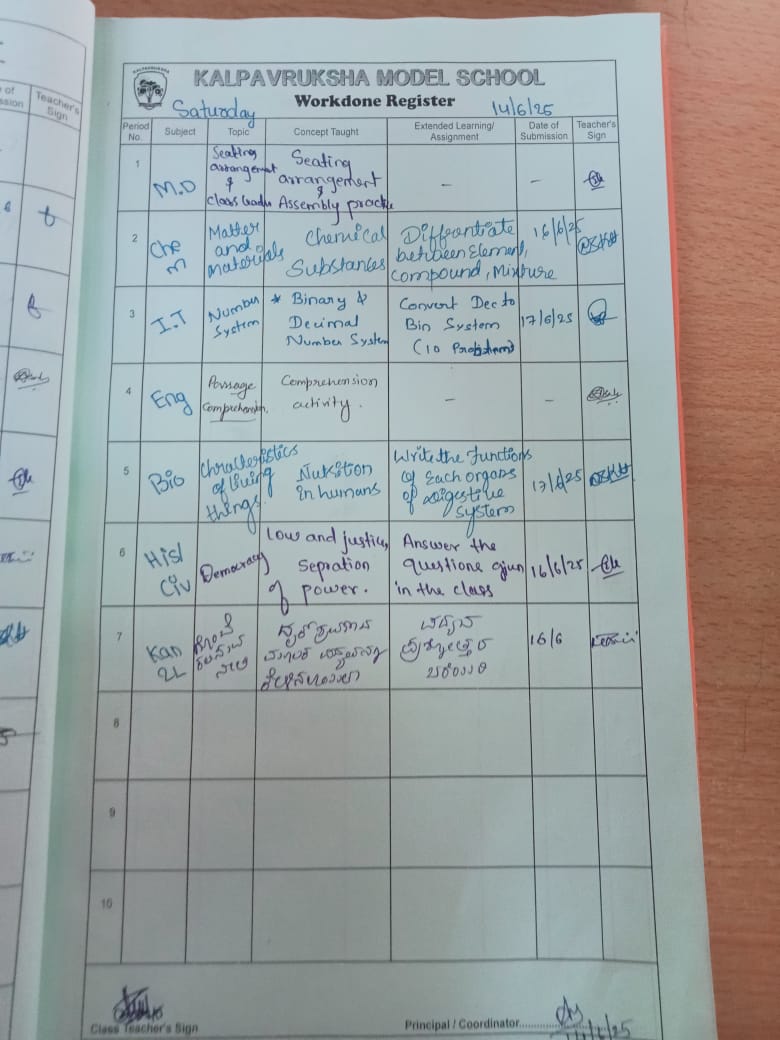 of
ssion
Teacher's
Sign
KALPAVRUKSHA
KALPAVRUKSHA MODEL SCHOOL
Workdone Register
Saturday
14/6/25
Period
No.
Subject
Topic
Concept Taught
Extended Learning/
Assignment
Date of
Submission
Teacher's
Sign
1
M.D
Seating
arrangement
&
Seating
arrangement
&
Assembly
–
–
2
Che
m
Matter
and
materials
Chemical
Substances
Diffrentiate
between Element,
compound, Mixture
16/6/25
3
I.T
Number
System
* Binary &
Decimal
Number System
Convert Dec to
Bin System
(10 Problem)
17/6/25
4
Eng
Passage
Comprehension.
Comprehension
activity.
–
–
5
Bio
of living
things
Nutrition
in humans
Write the functions
of Each organs
of digestive
system
17/6/25
6
Hist
Civ
Democracy
Low and justice,
Sepration
of power.
Answer the
in the class
16/6/25
7
Kan
2L
16/6
8
9
10
Class Teacher's Sign
Principal / Coordinator